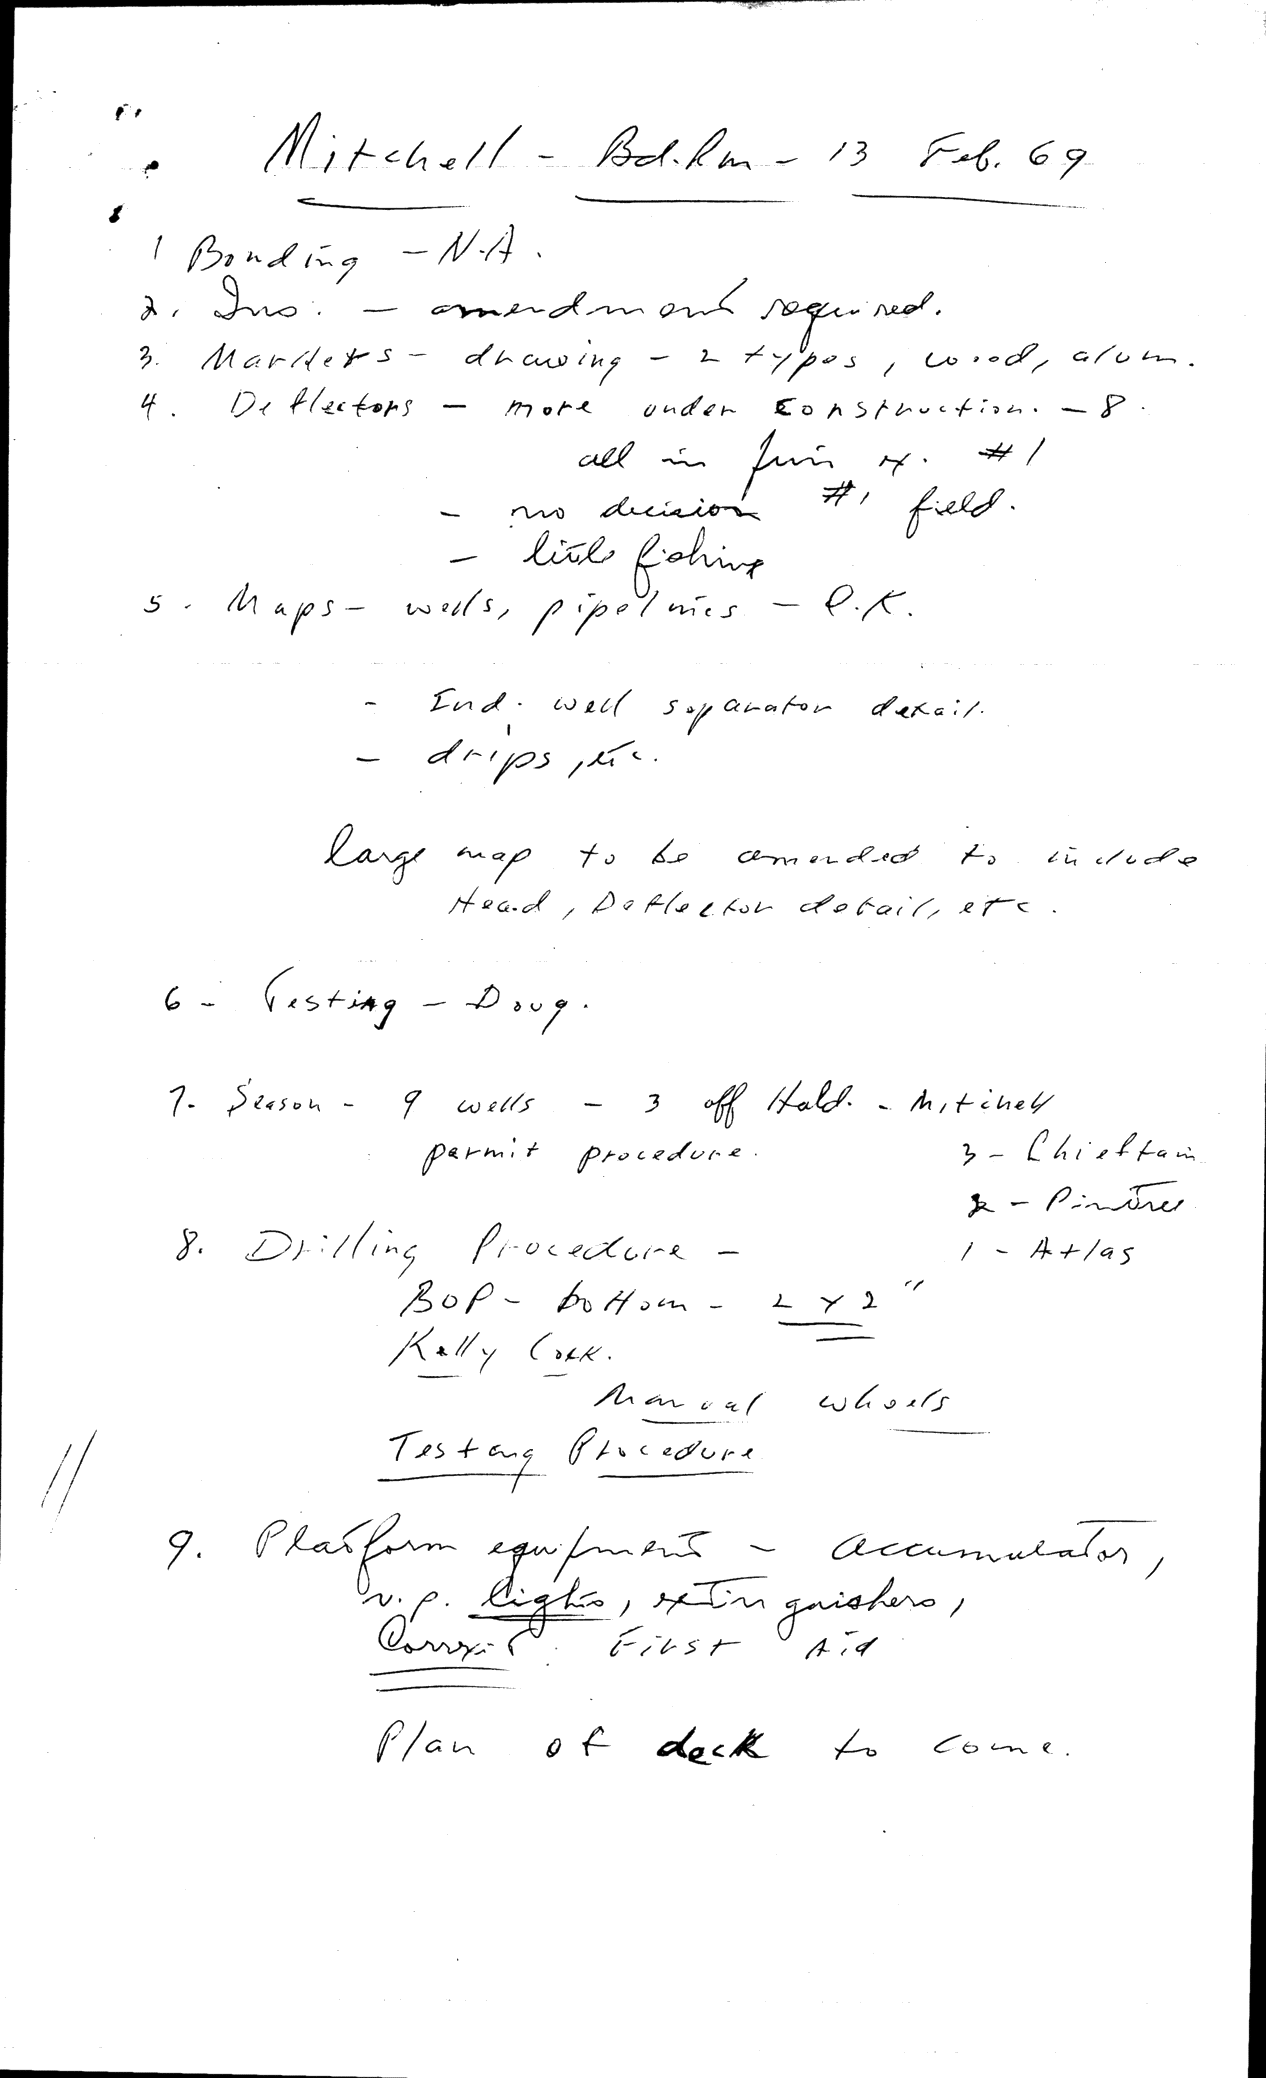 Mitchell - Bd. Rm - 13 Feb. 69
1 Bonding - N.A.
2. Ins. - amendment required.
3. Markers - drawing - 2 types, wood, alum.
4. Deflectors - more under construction. - 8.
all in #1
- no decision #1 field.
- little fishing
5. Maps - wells, pipelines - O.K.
- Ind. well separator detail.
- drips, etc.
large map to be amended to include
Head, Deflector detail, etc.
6 - Testing - Doug.
7. Season - 9 wells - 3 off Hald. - Mitchell
permit procedure. 3 - Chieftain
2 - Pinetree
8. Drilling Procedure - 1 - Atlas
BOP - bottom - 2 x 2"
Kelly Cock.
Manual wheels
Testing Procedure
9. Platform equipment - accumulator,
v.p. lights, extinguishers,
Correxit. First Aid
Plan of deck to come.